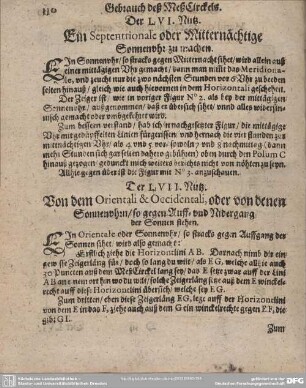 110
Gebrauch deß Meß Circkels.
Der LVI. Nutz.
Ein Septentrionale oder Mitternächtige
Sonnenuhr zu machen.
Ein Sonnenuhr / so stracks gegen Mitternacht sihet / wird allein auß
einer mittägigen Uhr gemacht / dann man nimbt das Meridiona-
le, vnd zeucht nur die zwo nächsten Stunden vor das Uhr zu beeden
seiten hinauß / gleich wie auch hievornen in dem Horizontali geschehen.
Der Zeiger ist / wie in voriger Figur N° 2. als bey der mittägigen
Sonnenuhr / außgenommen / daß er übersich sihet / vnd alles widersin-
nisch gemacht oder vmbgekehrt wird.
Zum bessern verstand / hab ich in nachgesetzter Figur / die mittägige
Uhr mit gedüpffelten Linien fürgerissen / vnd hernach die vier stunden zur
mitternächtigen Uhr / als 4. vnd 5 vor- sowoln 7 vnd 8 nachmittag (dann
mehr Stunden sich zu selten dahero gebühren) oben durch den Polum C
hinauß gezogen / gedunckt mich weiters berichts nicht von nöthen zu seyn.
Allhie gegen über ist die Figur mit N° 3. anzuschauen.
Der LVII. Nutz.
Von dem Orientali & Occidentali, oder von denen
Sonnenuhrn / so gegen Auff- vnd Nidergang
der Sonnen stehen.
Ein Orientale oder Sonnenuhr / so stracks gegen Auffgang der
Sonnen sihet / wird also gemacht:
Erstlich ziehe die Horizonlini AB. Darnach nimb die ein
gewisse Zeigerläng für / doch so lang du wilt / als EG, welche allzeit auch
30 Puncten auß dem Meß Circkel lang sey / das E setze zwar auff der Lini
AB an einem orth wo du wilt / solche Zeigerläng sine auß dem E winckel-
recht auff diese Horizonlini übersich / welche sey EG.
Zum dritten / oben diese Zeigerläng EG, lege auff der Horizonlini
von dem E in das F, ziehe auch auß dem G ein winckelrechte gegen EF, die
gibt GI.
Zum